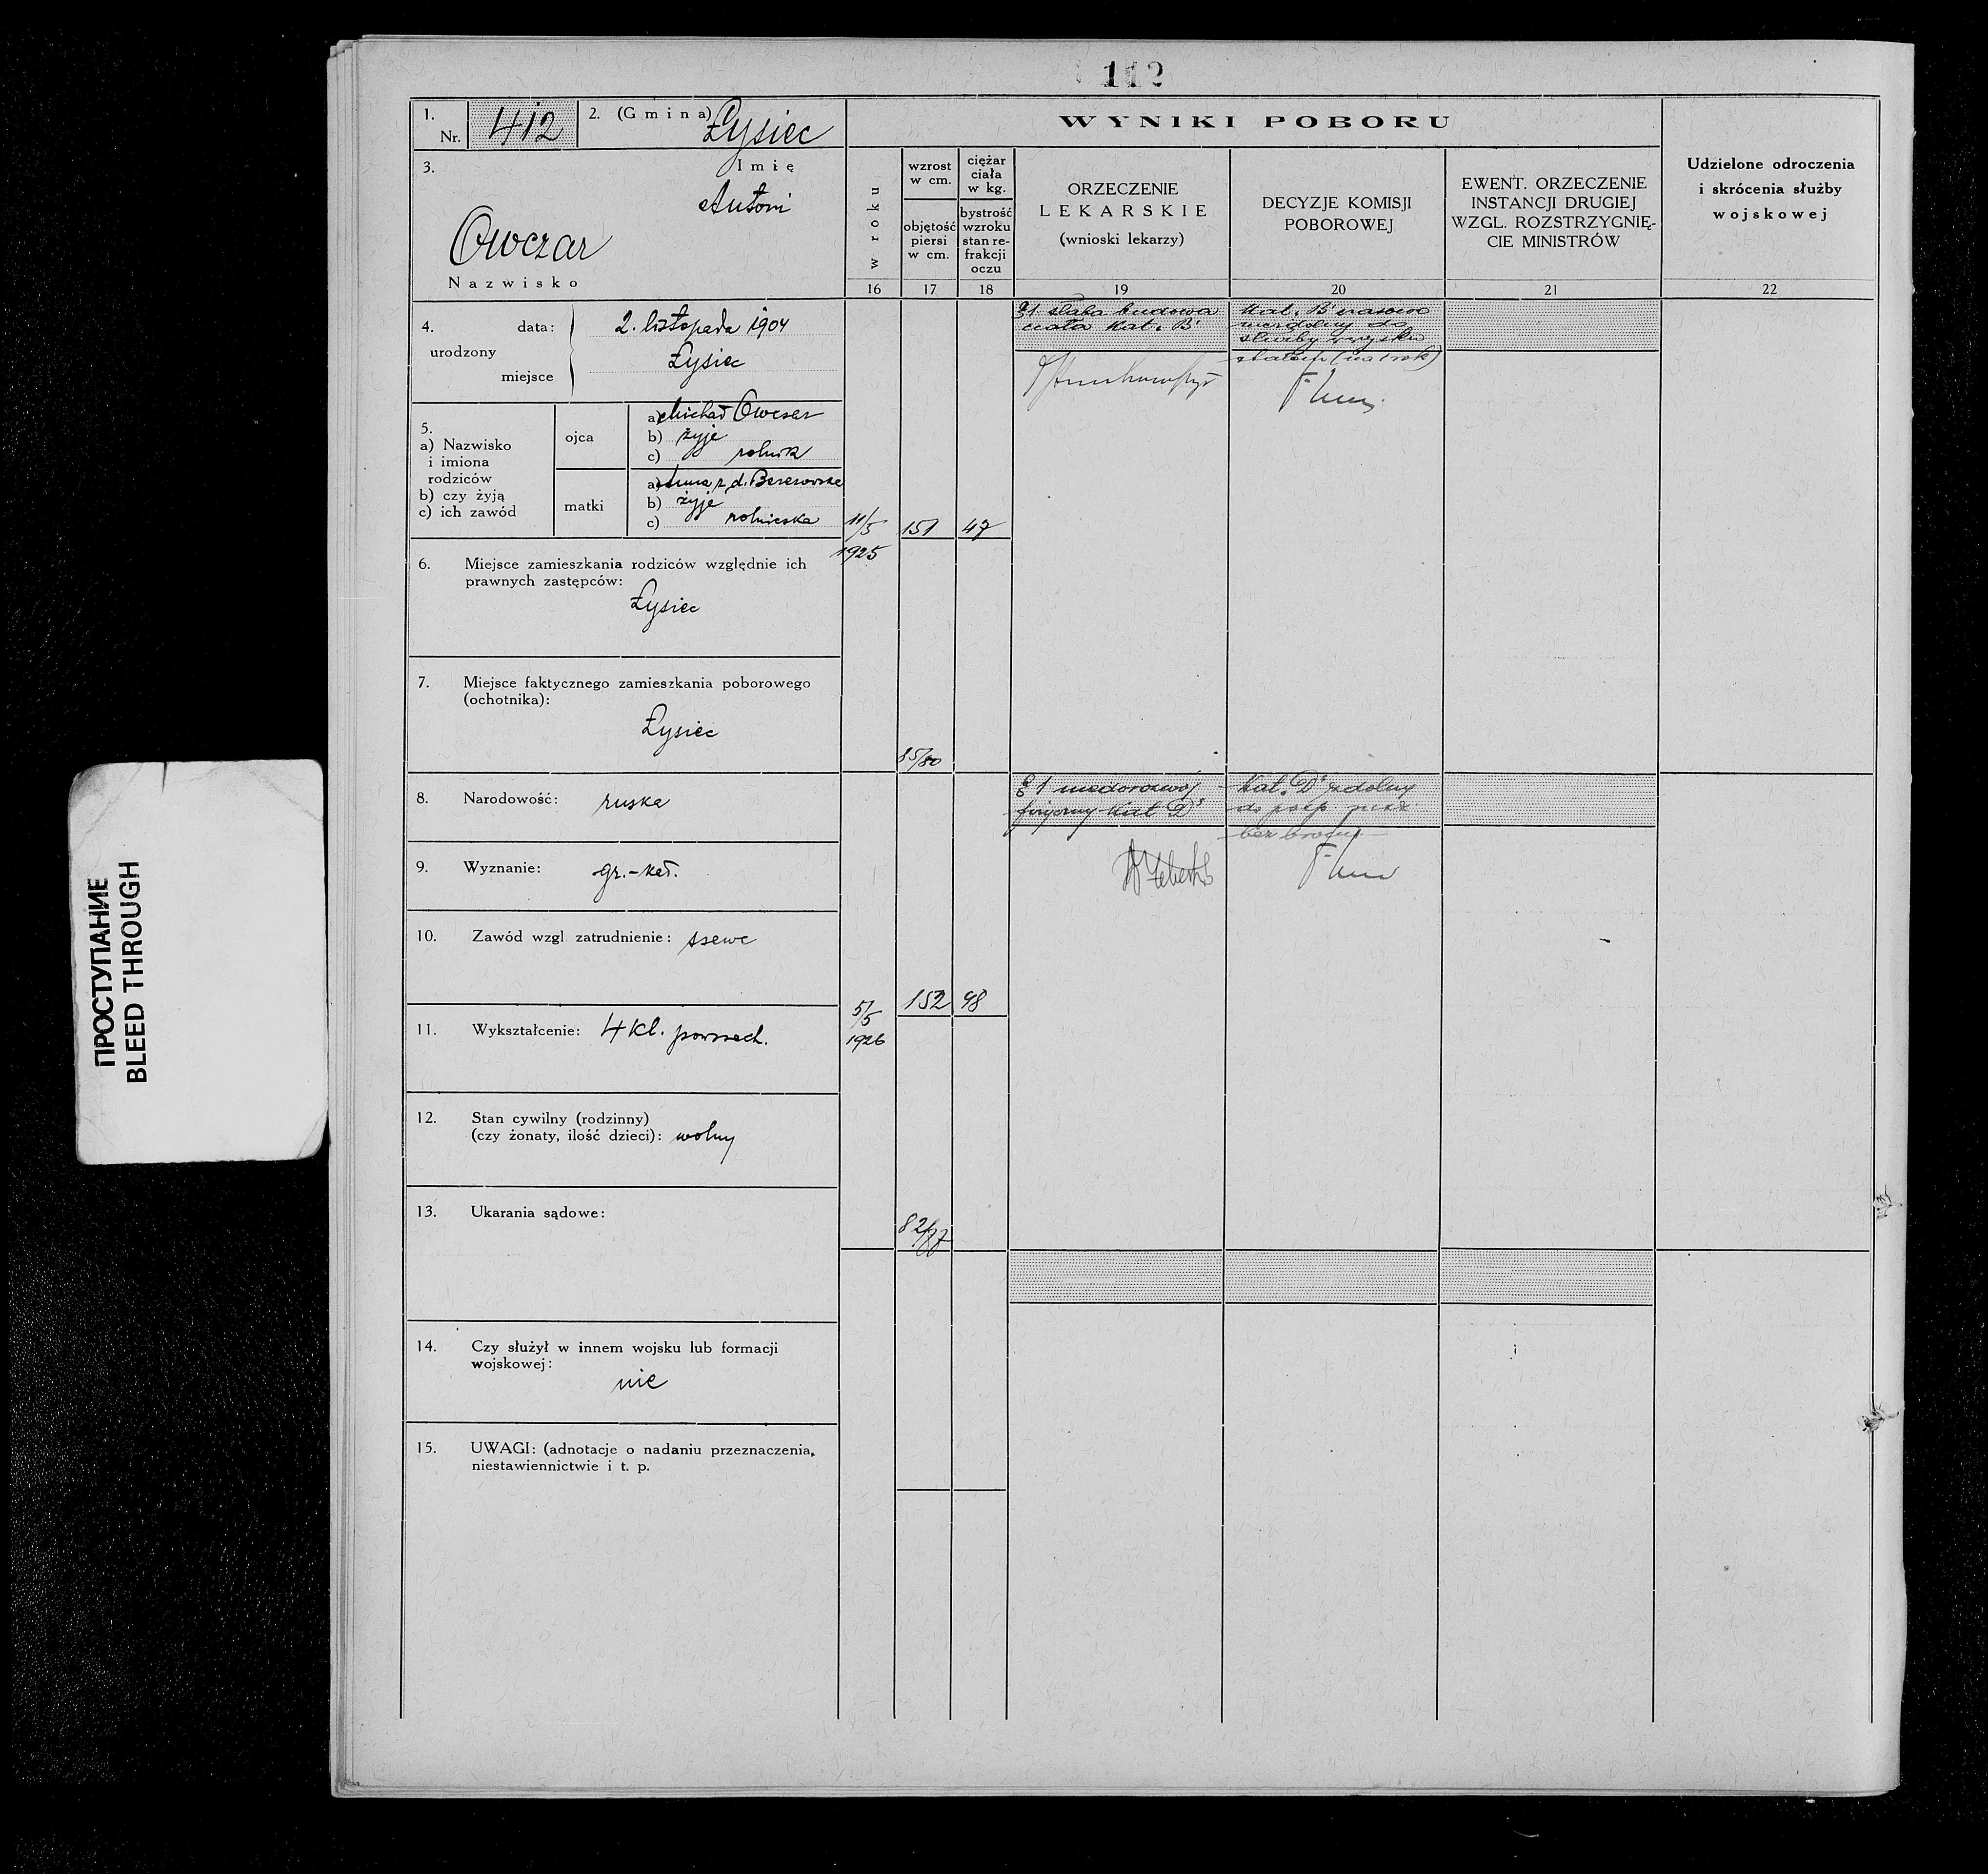 112
1.
Nr. 412
2. (Gmina) Łysiec
3.
Imię
Antoni
Owczar
Nazwisko
4.
urodzony
data: 2. listopada 1904
miejsce Łysiec
5.
a) Nazwisko
i imiona
rodziców
b) czy żyją
c) ich zawód
ojca
a) Michał Owczar
b) żyje
c) rolnik
matki
a) Anna z d. Berezowska
b) żyje
c) rolniczka
6. Miejsce zamieszkania rodziców względnie ich
prawnych zastępców:
Łysiec
7. Miejsce faktycznego zamieszkania poborowego
(ochotnika):
Łysiec
8. Narodowość: ruska
9. Wyznanie: gr.-kat.
10. Zawód wzgl. zatrudnienie: szewc
11. Wykształcenie: 4 kl. powszech.
12. Stan cywilny (rodzinny)
(czy żonaty, ilość dzieci): wolny
13. Ukarania sądowe:
14. Czy służył w innem wojsku lub formacji
wojskowej:
nie
15. UWAGI: (adnotacje o nadaniu przeznaczenia,
niestawiennictwie i t. p.
WYNIKI POBORU
w roku
16
wzrost
w cm.
objętość
piersi
w cm.
17
ciężar
ciała
w kg.
bystrość
wzroku
stan re-
frakcji
oczu
18
ORZECZENIE
LEKARSKIE
(wnioski lekarzy)
19
DECYZJE KOMISJI
POBOROWEJ
20
EWENT. ORZECZENIE
INSTANCJI DRUGIEJ
WZGL. ROZSTRZYGNIĘ-
CIE MINISTRÓW
21
Udzielone odroczenia
i skrócenia służby
wojskowej
22
11/5
1925
151
47
85/80
słaba budowa
ciała Kat. B
Kat. B czasowo
niezdolny do
służby wojska
(na 1 rok)
5/5
1926
152
48
82/77
§ 1 niedorozwój
fizyczny Kat D
Kat. D zdolny
do posp. rusz.
bez broni
ПРОСТУПАНИЕ
BLEED THROUGH